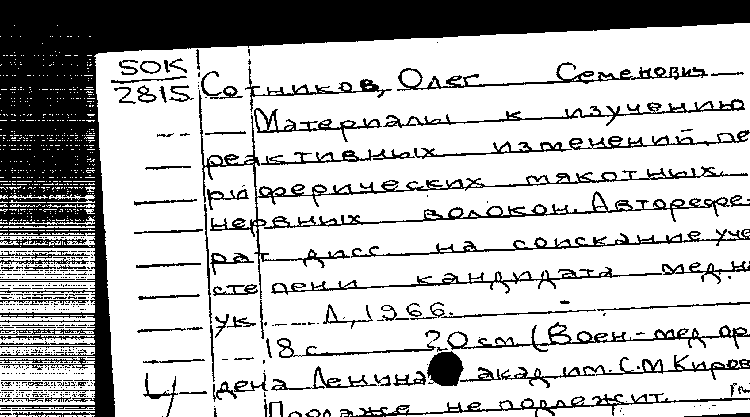 50К
2815 Сотников, Олег Семенович
Материалы к изучению
реактивных изменений пе-
риферических мякотных
нервных волокон. Авторефе-
рат дисс. на соискание уче
степени кандидата мед. н
ук Л, 1966.
18 с. 20 см (Воен-мед. ор
дена Ленина акад им. С.М Киров
Продаже не подлежит.